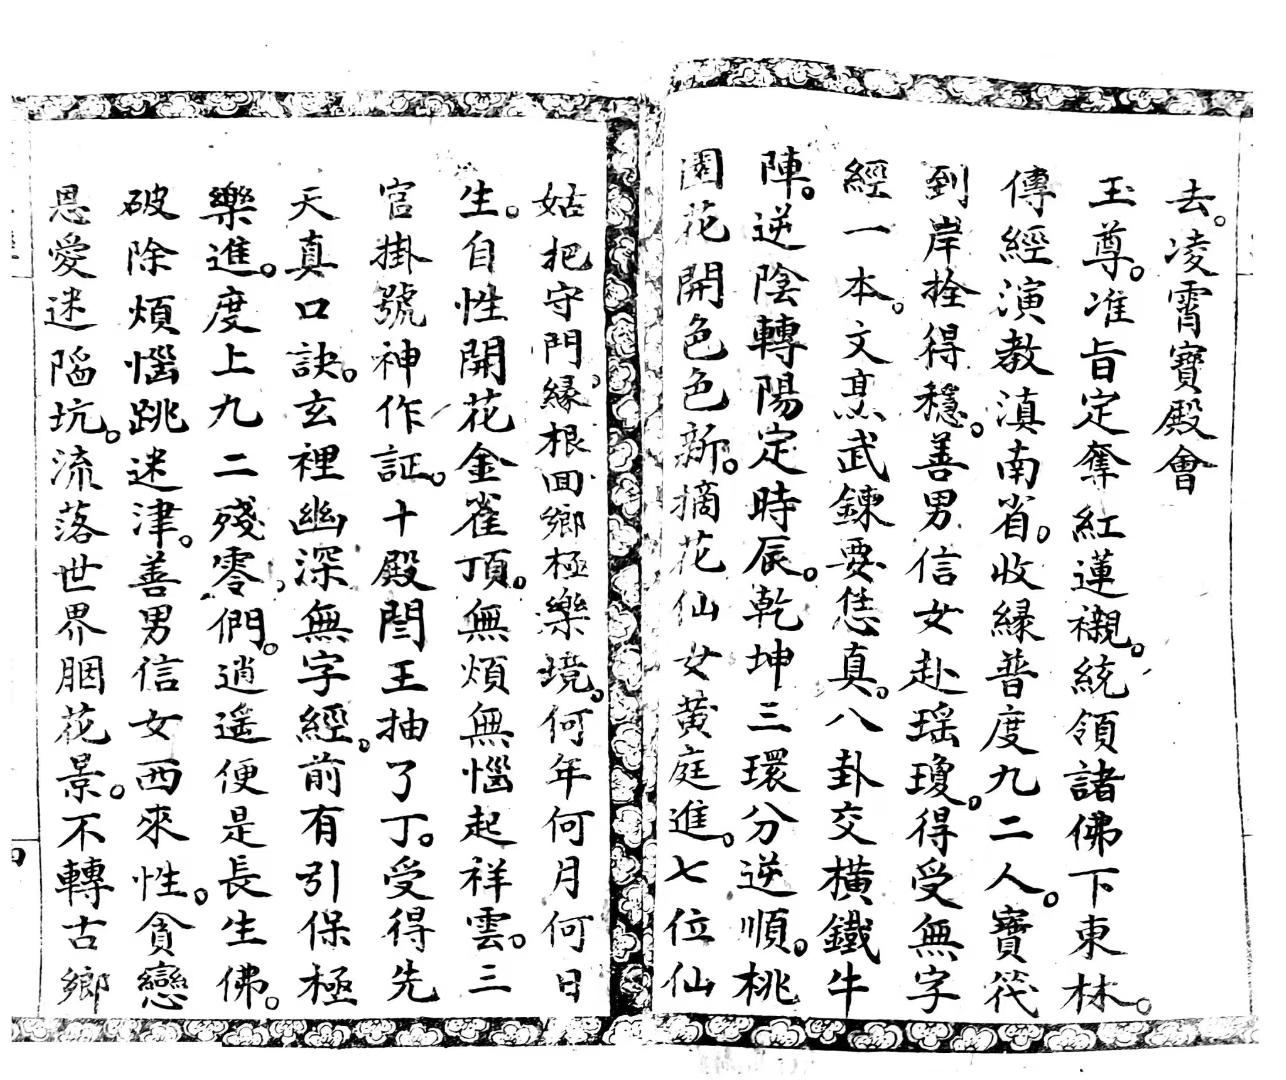 去。凌霄寶殿會
玉尊。准旨定奪紅蓮襯。統領諸佛下東林。
傳經演教滇南省。收緣普度九二人。寶筏
到岸拴得穩。善男信女赴瑶瓊。得受無字
經一本。文烹武鍊要恁真。八卦交橫鐵牛
陣。逆陰轉陽定時辰。乾坤三環分逆順。桃
園花開色色新。摘花仙女黃庭進。七位仙
姑把守門。緣根回鄉極樂境。何年何月何日
生。自性開花金雀頂。無煩無惱起祥雲。三
官掛號神作証。十殿閆王抽了丁。受得先
天真口訣。玄裡幽深無字經。前有引保極
樂進。度上九二殘零們。逍遥便是長生佛。
破除煩惱跳迷津。善男信女西來性。貪戀
恩愛迷陷坑。流落世界胭花景。不轉古鄉